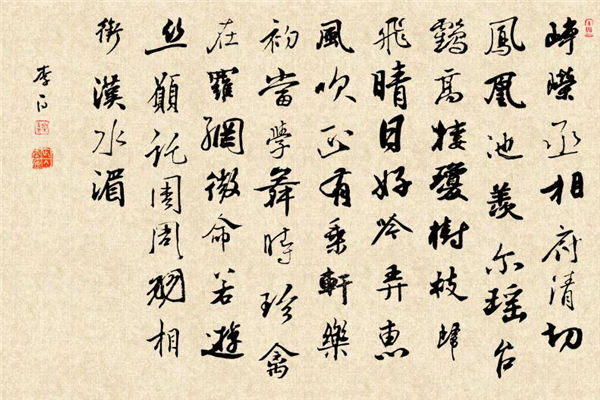 崢嶸丞相府清切
鳳凰池羨尔瑶台
鶴高棲瓊樹枝歸
飛晴日好吟弄惠
風吹正有乘軒樂
初當學舞時珍禽
在羅網微命若遊
丝願託周周羽相
銜漢水湄
李白